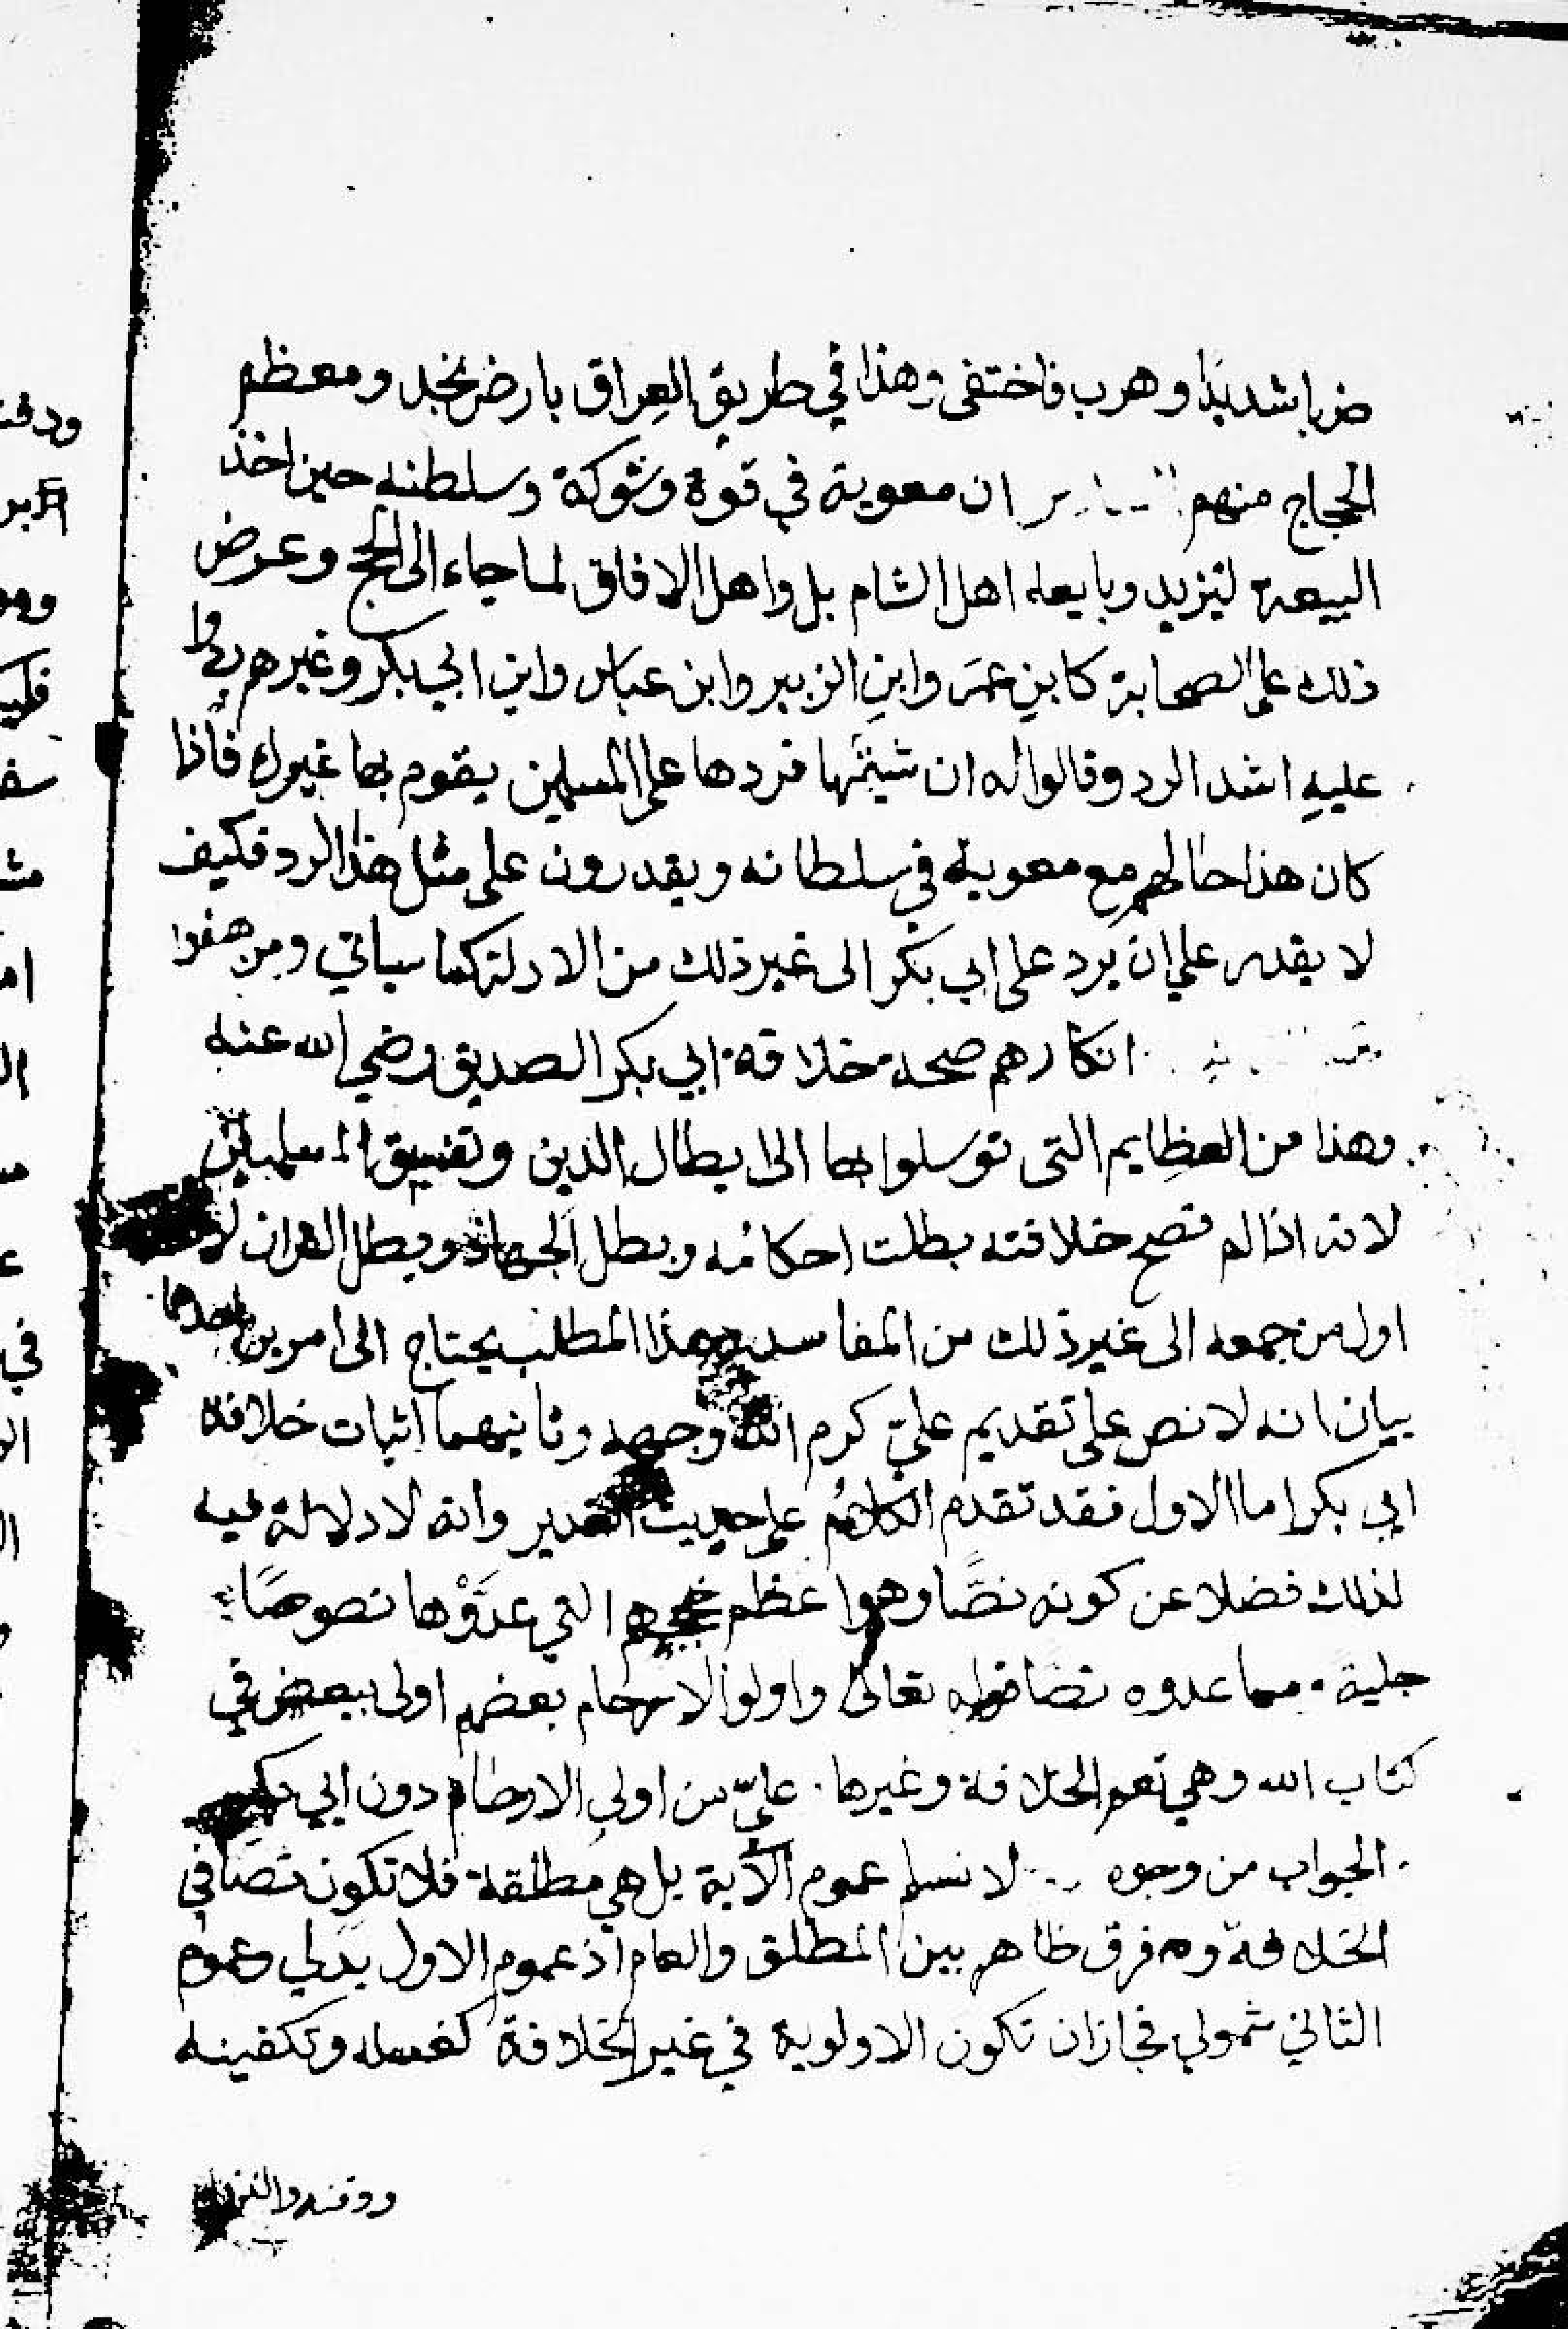 ضربا شديدا وهرب فاختفى وهذا في طريق العراق بارض نجد ومعظم
الحجاج منهم ان معوية في قوة وشوكة وسلطنه حين اخذ
البيعة ليزيد وبايعه اهل الشام بل واهل الافاق لما جاء الى الحج وعرض
ذلك على الصحابة كابن عمر وابن الزبير وابن عباس وابن ابي بكر وغيرهم ردوا
عليه اشد الرد وقالوا له ان شيتها فردها على المسلمين يقوم بها غيرك فاذا
كان هذا حالهم مع معوية في سلطانه ويقدرون على مثل هذا الرد فكيف
لا يقدر على ان يرد على ابي بكر الى غير ذلك من الادلة كما سياتي ومن هفوا
انكارهم صحة خلافة ابي بكر الصديق رضي الله عنه
وهذا من العظايم التى توسلوا بها الى ابطال الدين وتفسيق المسلمين
لانه اذا لم تصح خلافته بطلت احكامه وبطل الجهاد وبطل القران لانه
اول من جمعه الى غير ذلك من المفاسد وهذا المطلب يحتاج الى امرين احدهما
بيان انه لا نص على تقديم علي كرم الله وجهه وثانيهما اثبات خلافة
ابي بكر اما الاول فقد تقدم الكلام على حديث الغدير وانه لا دلالة فيه
لذلك فضلا عن كونه نصًا وهو اعظم حججهم التي عدَوْها نصوصًا
جلية مما عدوه نصا قوله تعالى واولوا الارحام بعضهم اولى ببعض في
كتاب الله وهي تعم الخلافة وغيرها علىّ من اولي الارحام دون ابي بكر
الجواب من وجوه لا نسلم عموم الآية بل هي مطلقة فلا تكون نصا في
الخلافة وم فرق ظاهر بين المطلق والعام اذ عموم الاول بدلي وعموم
الثاني شمولي فجاز ان تكون الاولوية في غير الخلافة كغسله وتكفينه
ودفنه